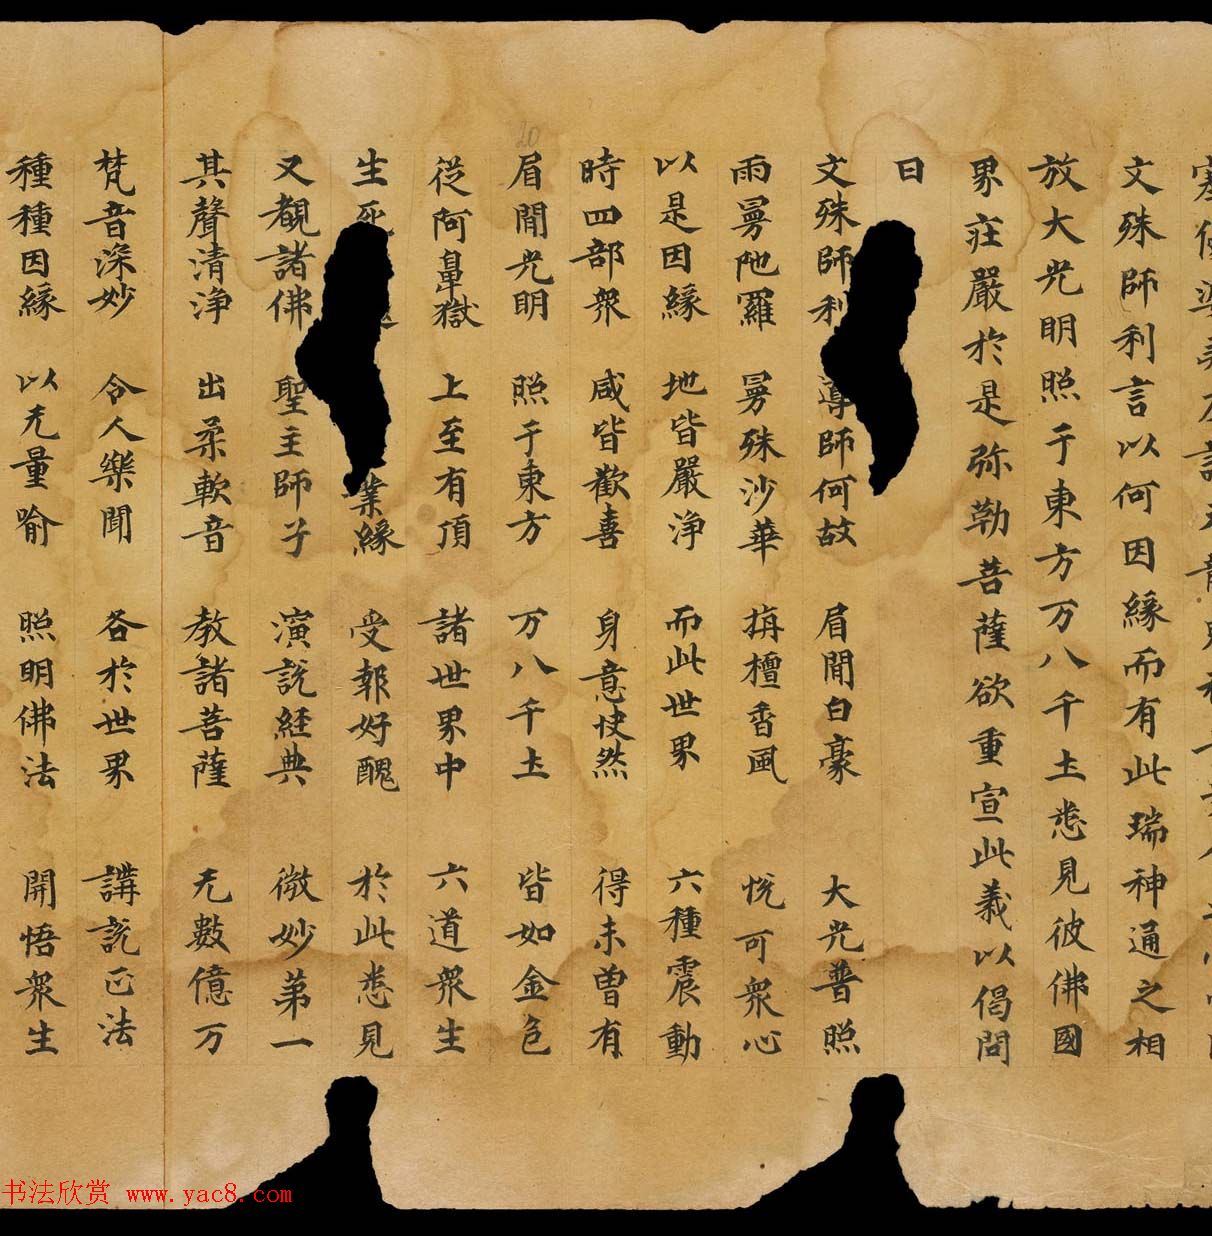 文殊師利言以何因緣而有此瑞神通之相
放大光明照于東方万八千土悉見彼佛國
界莊嚴於是弥勒菩薩欲重宣此義以偈問
曰
文殊師利 導師何故 眉間白豪 大光普照
雨曼陁羅 曼殊沙華 栴檀香風 悅可衆心
以是因緣 地皆嚴淨 而此世界 六種震動
時四部衆 咸皆歡喜 身意快然 得未曾有
眉間光明 照于東方 万八千土 皆如金色
從阿鼻獄 上至有頂 諸世界中 六道衆生
生死 業緣 受報好醜 於此悉見
又覩諸佛 聖主師子 演說經典 微妙第一
其聲清淨 出柔軟音 教諸菩薩 无數億万
梵音深妙 令人樂聞 各於世界 講說正法
種種因緣 以无量喻 照明佛法 開悟衆生
20
书法欣赏 www.yac8.com